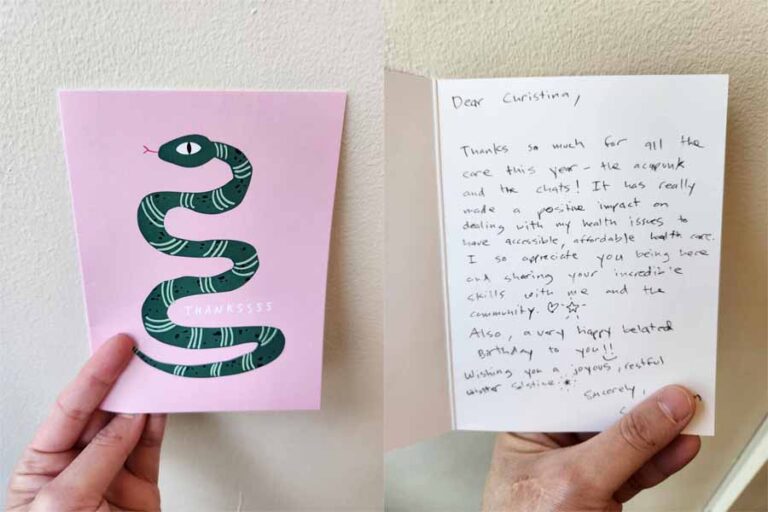 THANKSSSS
Dear Christina,
Thanks so much for all the
care this year - the acupunk
and the chats! It has really
made a positive impact on
dealing with my health issues to
have accessible, affordable health care.
I so appreciate you being here
and sharing your incredible
skills with me and the
community. ♡ ☆
Also, a very happy belated
Birthday to you!!
Wishing you a joyous, restful
winter solstice
Sincerely,